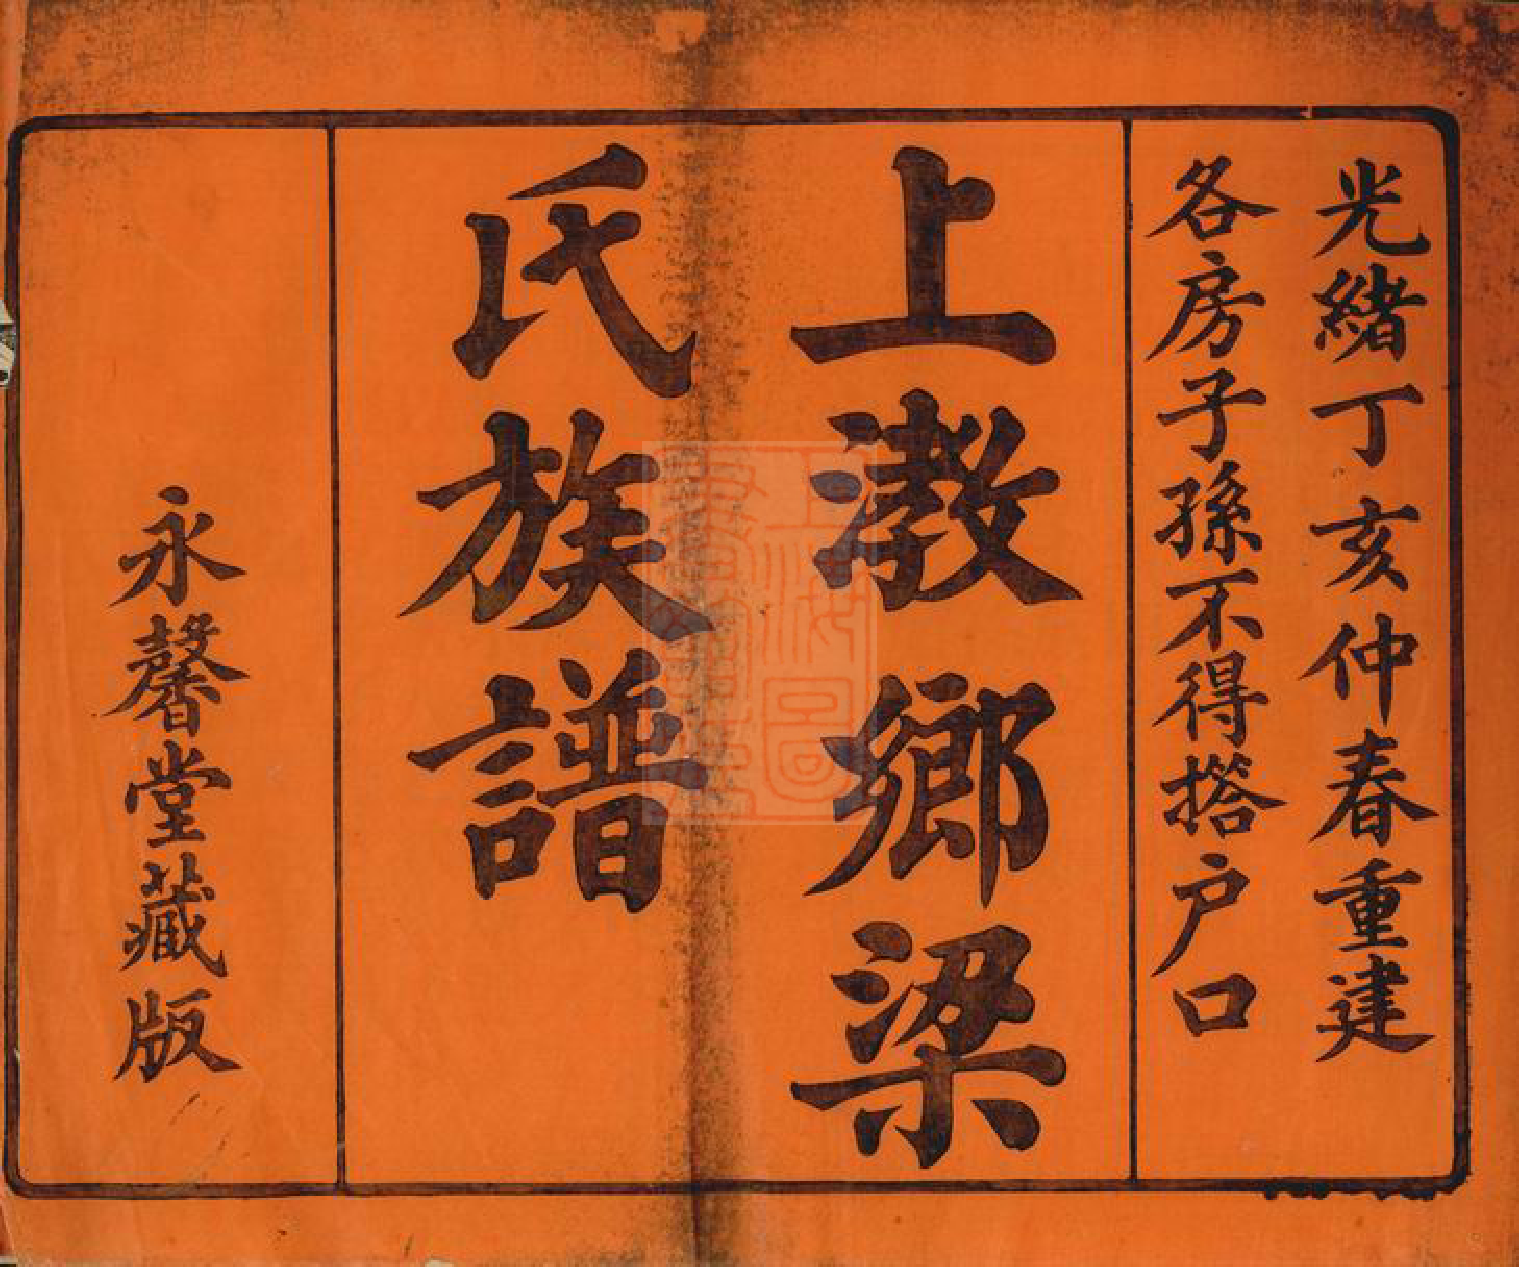 光緒丁亥仲春重建
各房子孫不得撘户口
上漖鄉梁
氏族譜
永馨堂藏版